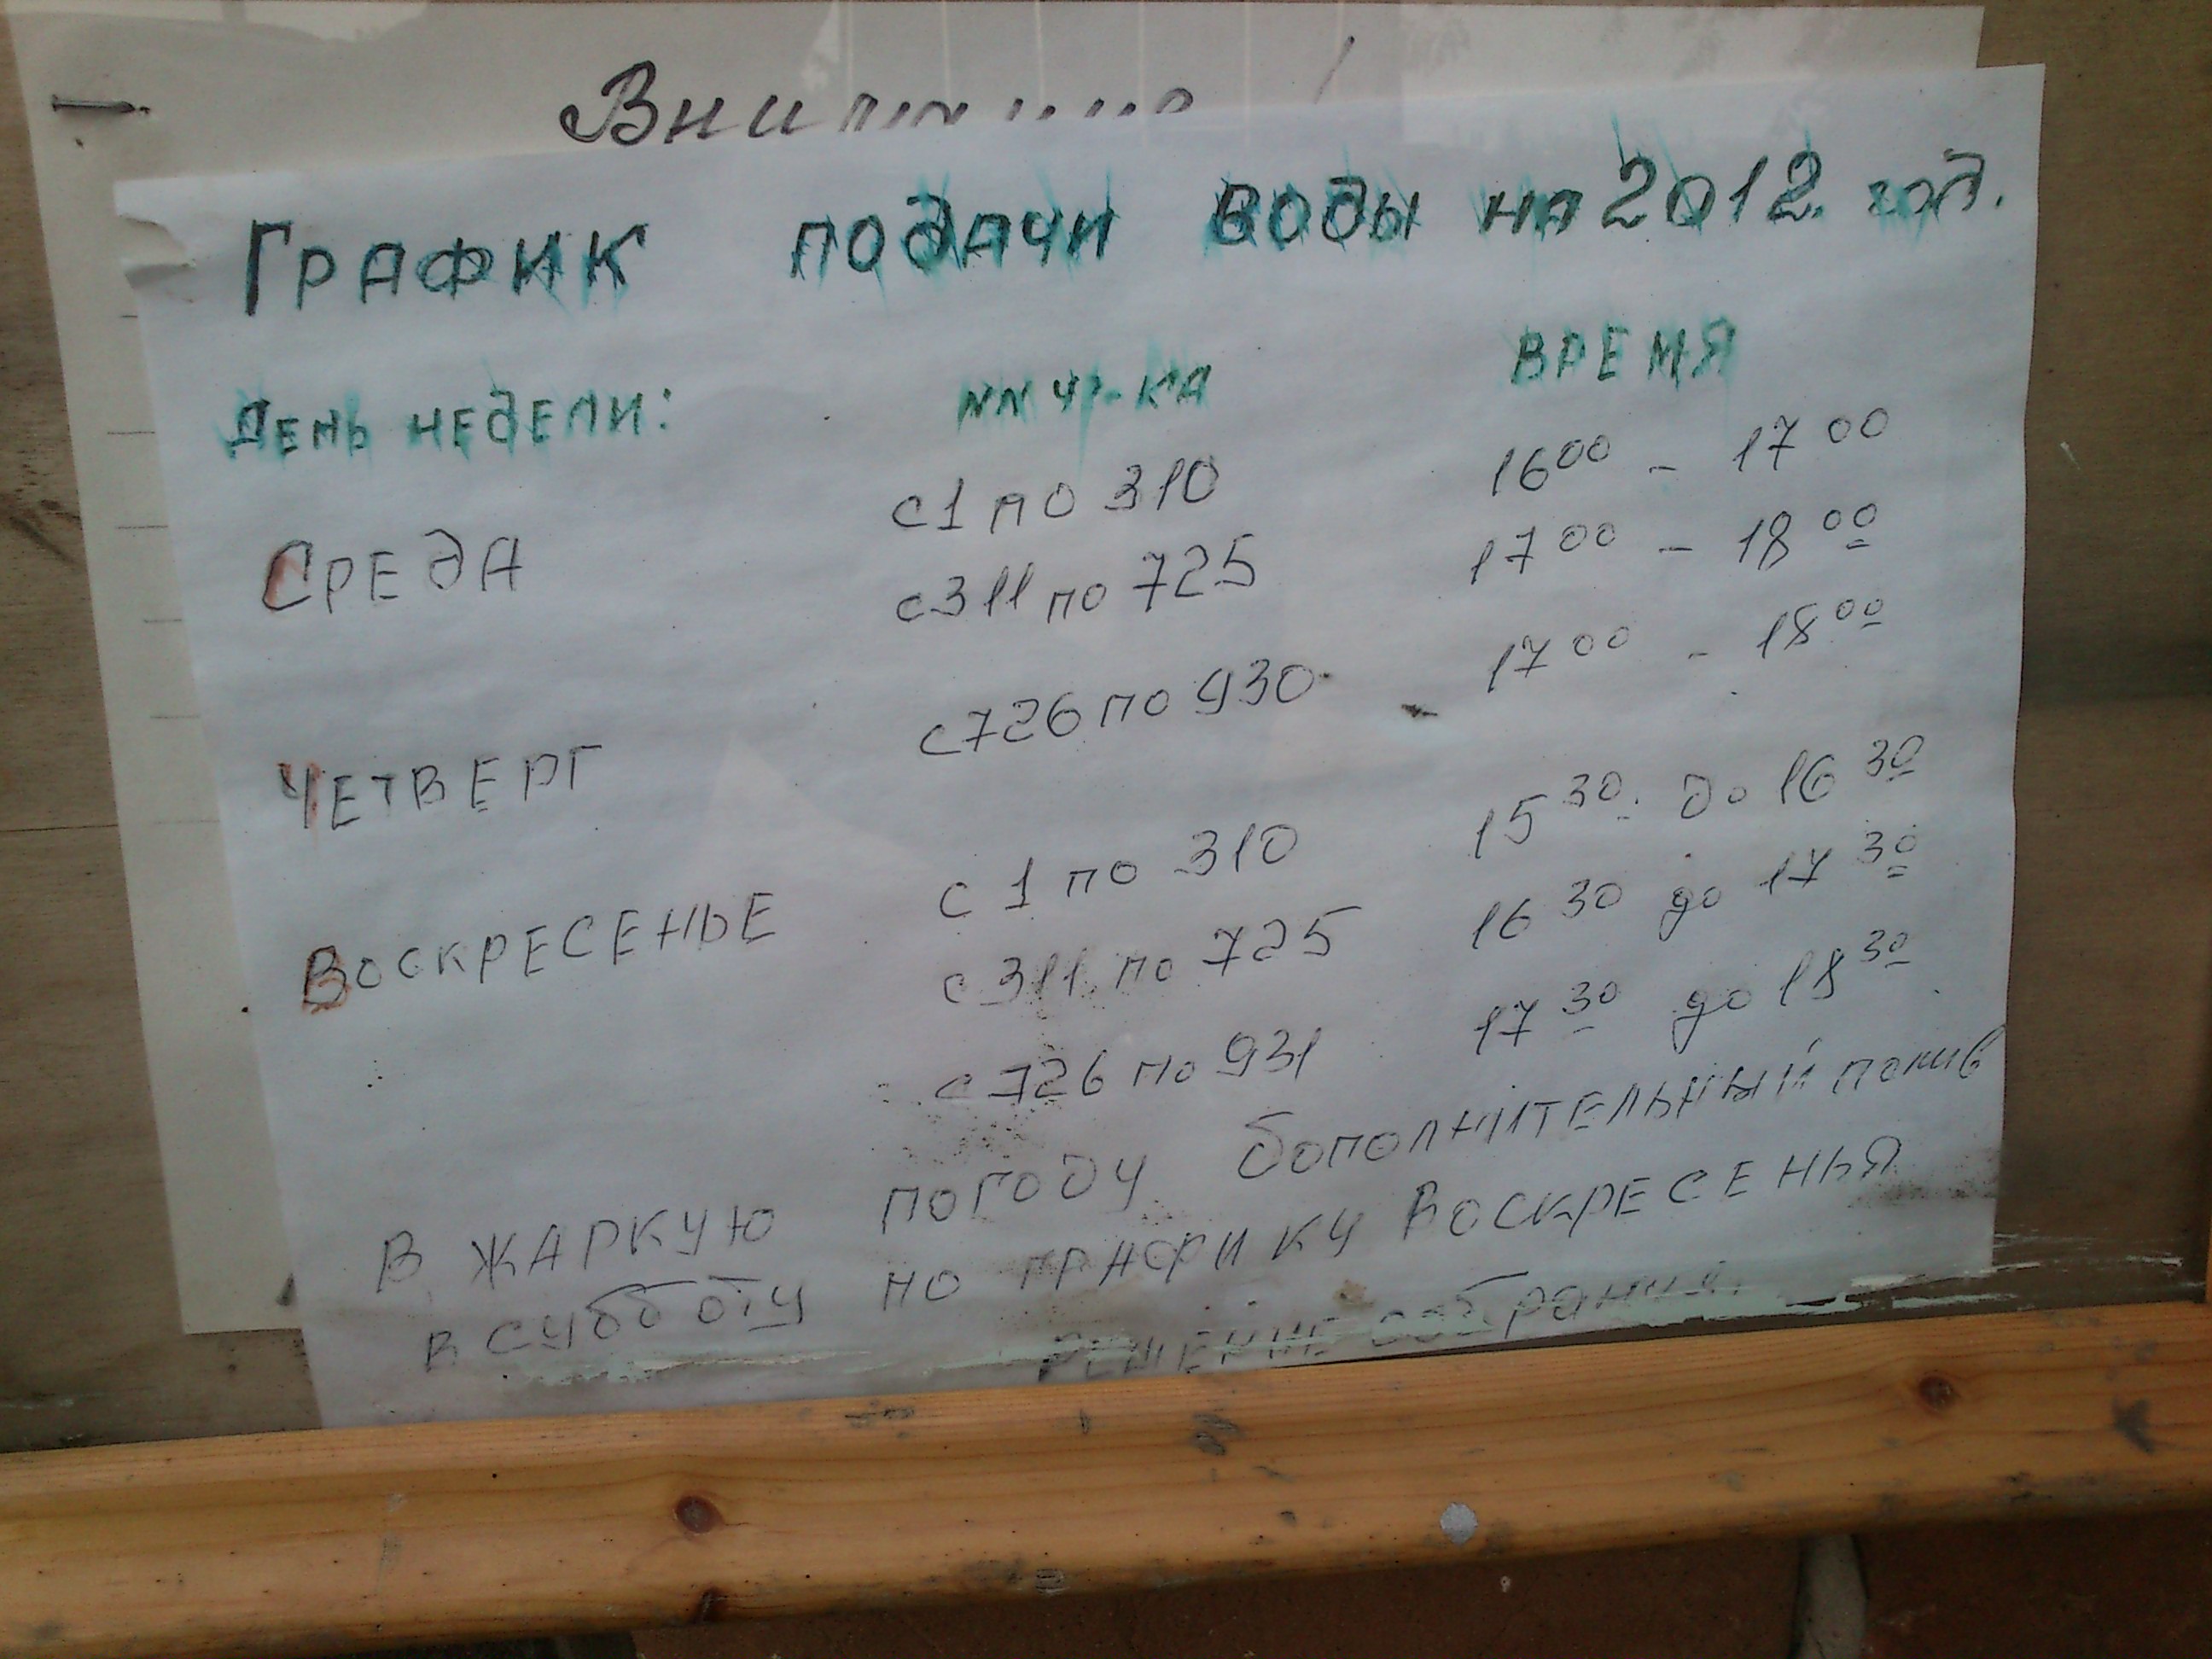 График подачи воды на 2012 год.
День недели: NN уч-ка Время
с 1 по 310 16 00 - 17 00
Среда с 311 по 725 17 00 - 18 00
с 726 по 930 17 00 - 18 00
Четверг
с 1 по 310 15 30 до 16 30
Воскресенье с 311 по 725 16 30 до 17 30
с 726 по 931 17 30 до 18 30
В жаркую погоду дополнительный полив
в субботу по графику Воскресенья
Решение собрания.